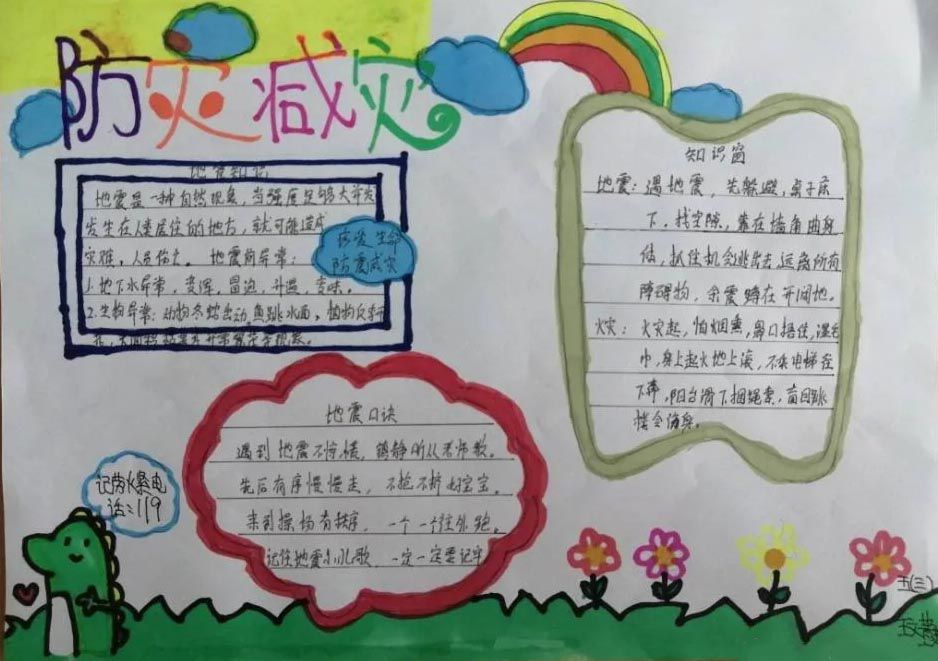 防灾减灾
地震知识
地震是一种自然现象，当强度足够大并
发生在人类居住的地方，就可能造成
灾难，人员伤亡。地震前异常：
1.地下水异常，变浑，冒泡，升温，变味。
2.生物异常：动物冬蛇出动，鱼跳水面，植物
珍爱生命
防震减灾
知识窗
地震：遇地震，先躲避，桌子床
下，找空隙，靠在墙角曲身
体，抓住机会逃出去远离所有
障碍物，余震蹲在开阔地。
火灾：火灾起，怕烟熏，鼻口捂住，湿毛
巾，身上起火地上滚，不乘电梯往
下奔，阳台滑下捆绳索，盲目跳
楼会伤身。
地震口诀
遇到地震不惊慌，镇静听从老师教。
先后有序慢慢走，不抢不挤好宝宝。
来到操场有秩序，一个一个往外跑。
记住地震小儿歌，一定一定要记牢
记劳火警电
话：119
五(三)